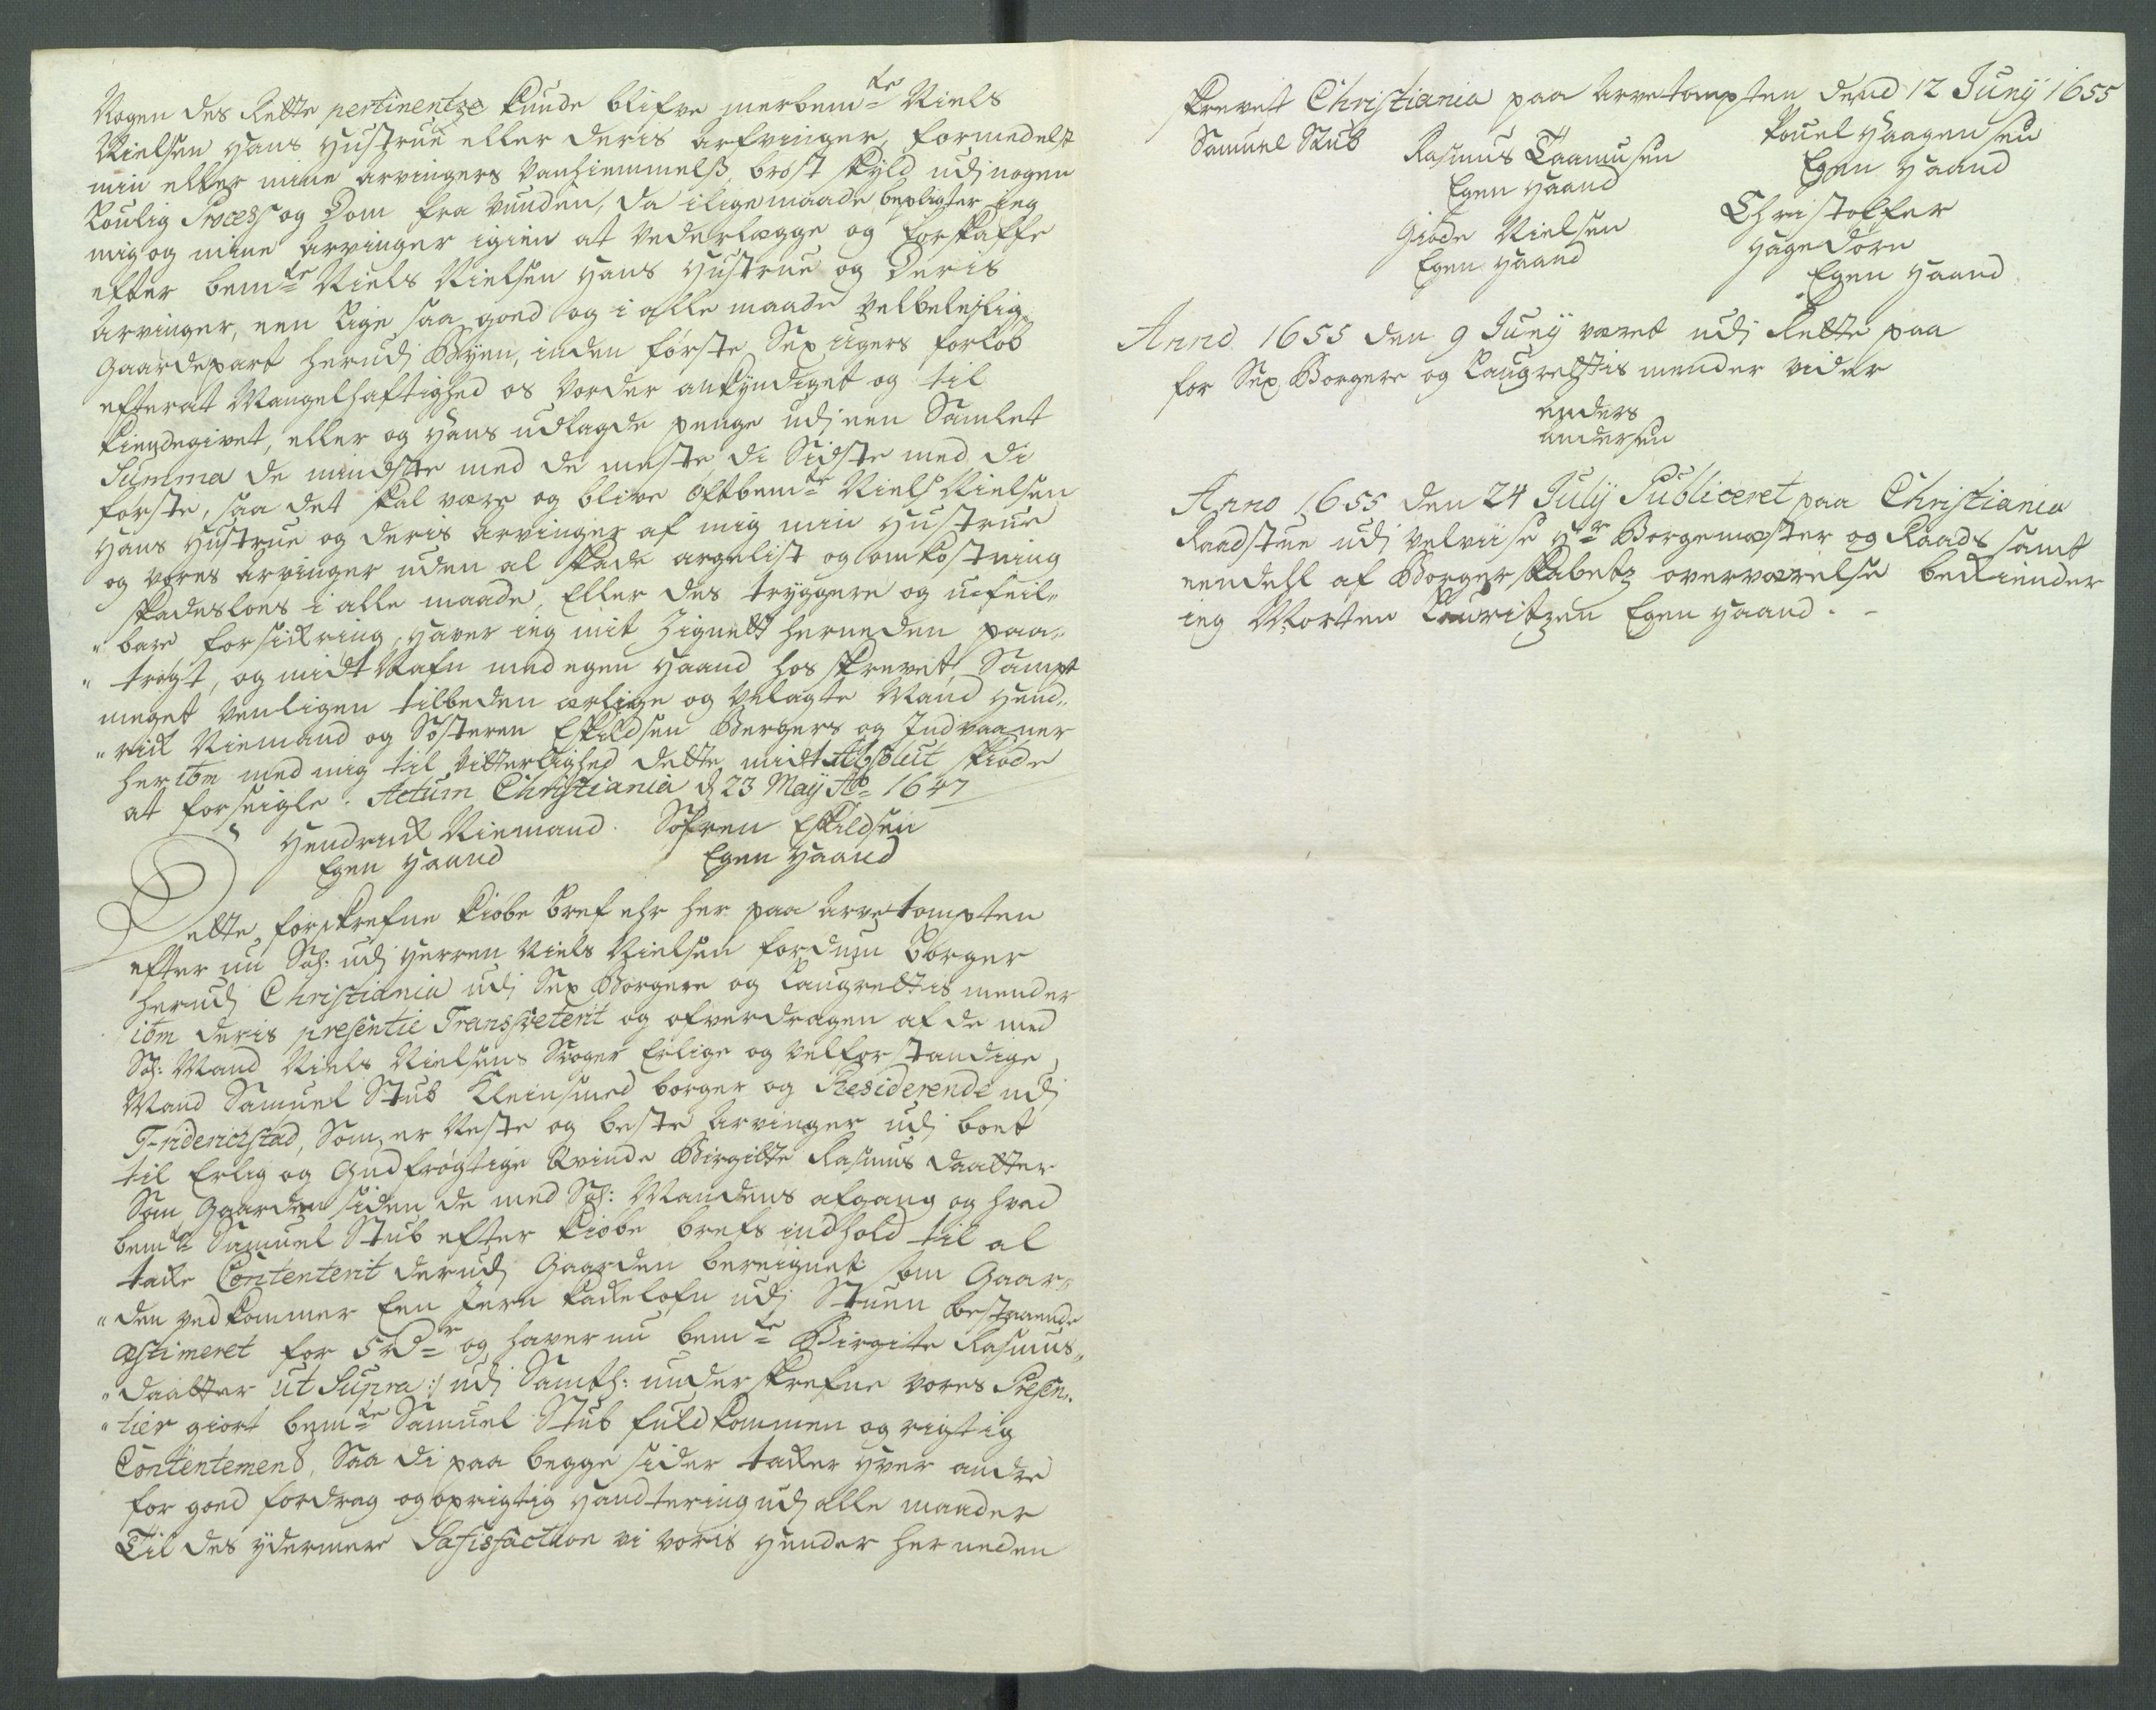 Nogen des Rette pertinentze kunde blifve merbem.te Niels
Nielsen hans Hustrue eller deris arfvinger, formedelst
min eller mine arvingers Vanhiemmelß, brøst skyld udj nogen
Loulig Process og Dom fra vunden, da iligemaade bepligter ieg
mig og mine arvinger igien at Vederlægge og forskaffe
efter bem.te Niels Nielsen hans Hustrue og Deris
arvinger, een lige saa goed og i alle maade velbelejlig
Gaardepart herudj Byen, inden første Sex ugers forløb
efterat Mangelhaftighed os vorder ankyndiget og til
kiendegivet, eller og hans udlagde penge udj een Samlet
Summa de mindste med de meste, di Sidste med di
første, saa det skal være og blive oftbem.te Niels Nielsen
hans Hustrue og deris arvinger af mig min Hustrue
og vores arvinger uden al skade argelist og omkostning
skadesloes i alle maade, Eller des tryggere og ufeil-
"bare forsickring, haver ieg mit Zignett herneden paa-
"trøgt, og midt Nafn med egen Haand hos skrevet, Sampt
meget venligen tilbeden ærlige og velagte Mand Hend-
"rick Niemand og Søfren Eskildsen Borgers og Indvaaner
her ibm med mig til vitterlighed dette midt Absolut skiøde
at forseigle. Actum Christiania d 23 Maÿ Ao 1647
Hendrick Niemand. Søfren Eskildsen
Egen Haand Egen Haand
Dette forskrefne kiøbe bref ehr her paa arvetompten
efter nu Sal: udj Herren Niels Nielsen fordum borger
herudj Christiania udj Sex Borgere og Laugrettis mender
ibm deris presentie Transporterit og ofverdragen af de med
Sal: Mand Niels Nielsens Svoger Erlige og velforstandige
Mand Samuel Stub Kleinsmed borger og Residerende udj
Friderichstad, Som er Neste og beste arvinger udj boet
til Erlig og Gudfrøgtige Qvinde Birgitte Rasmus daatter
Som Gaarden siden de med Sal: Mandens afgang og hvad
bem.te Samuel Stub efter kiøbe brefs indhold til al
tacke Contenterit derudj Gaarden bereignet som Gaar-
"den vedkommer Een Jern kackelofn udj Stuen bestaaende
æstimeret for 5 Rdr og haver nu bem.te Birgite Rasmus-
"daatter ut Supra :/ udj Samtl: underskrefne vores Presen-
"tier giort bem.te Samuel Stub fuldkommen og rigtig
Contentement, Saa di paa begge sider tacker hver andre
for goed fordrag og oprigtig Handtering udj alle maader
Til des ydermere Satisfaction vi voris Hender her neden
skrevet Christiania paa arvetompten dend 12 Junÿ 1655
Samuel Stub Rasmus Taamusen Pouel Haagensen
Egen Haand Egen Haand
Giøde Nielsen Christoffer
Egen Haand Hagedorn
Egen Haand
Anno 1655 den 9 Junÿ været udj Rette paa
for Sex Borgere og Laugrettis mender vider
Anders
Andersen
Anno 1655 den 24 Julÿ Publiceret paa Christiania
Raadstue udj velviise Hr Borgemæster og Raads samt
eendehl af Borgerskabetz overværelse bekiender
ieg Morten Lauritzen Egen Haand. -